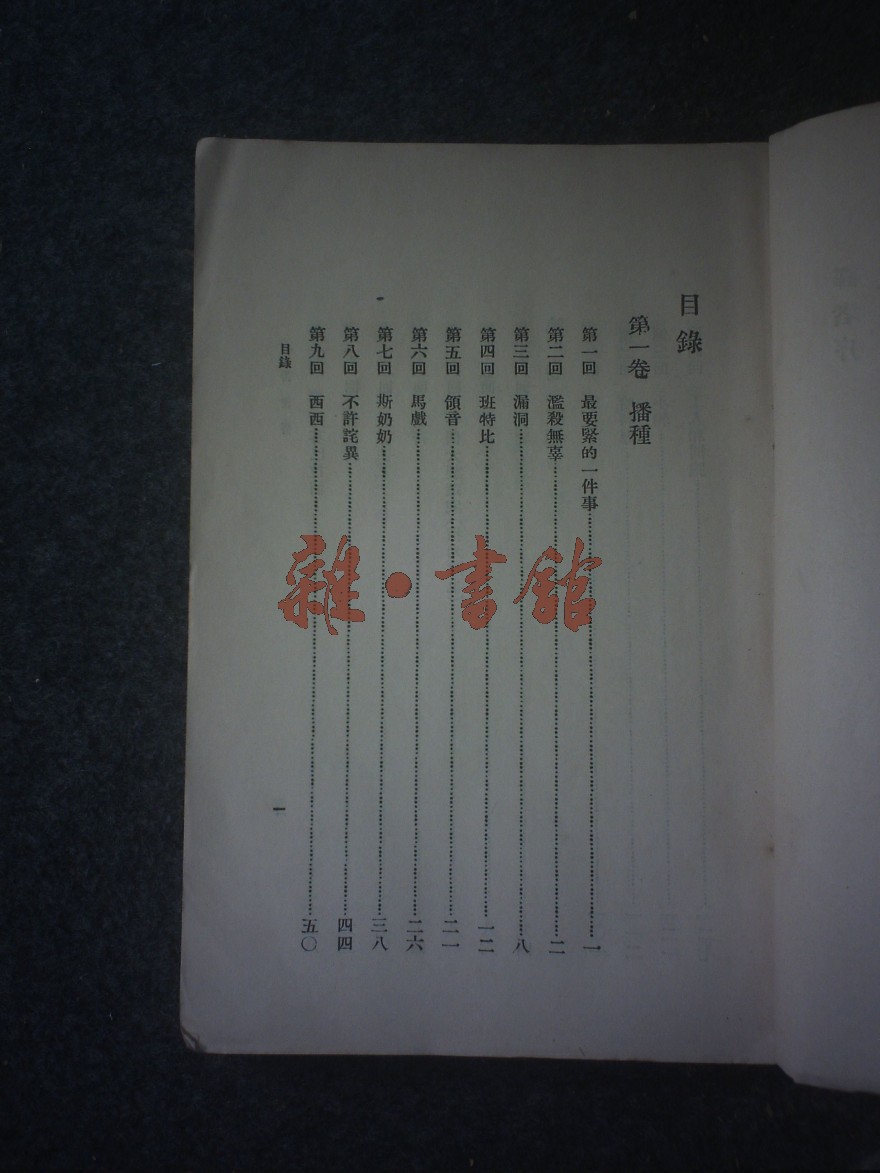 目錄
第一卷 播種
第一回 最要緊的一件事……一
第二回 濫殺無辜……二
第三回 漏洞……八
第四回 班特比……一二
第五回 領音……二一
第六回 馬戲……二六
第七回 斯奶奶……三八
第八回 不許詫異……四四
第九回 西西……五〇
目錄
一
雜·書館